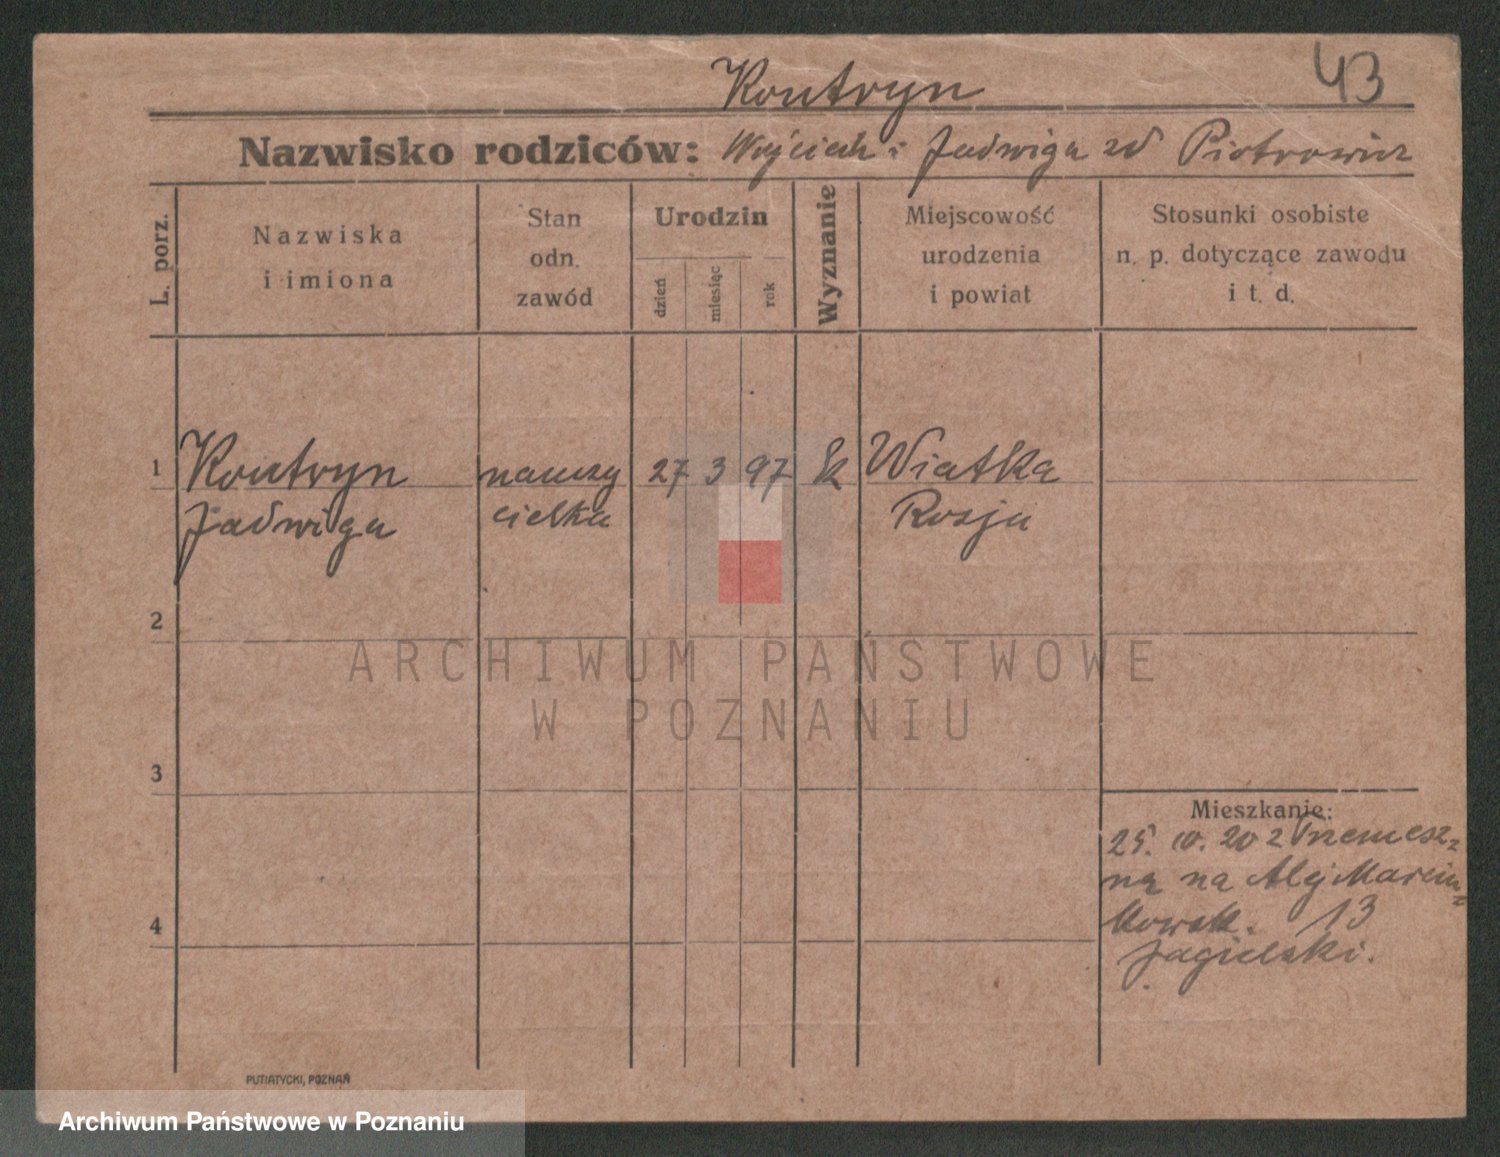 43
Kontryn
Nazwisko rodziców: Wojciech i Jadwiga zd Piotrowicz
L. porz.
Nazwiska
i imiona
Stan
odn.
zawód
Urodzin
dzień
miesiąc
rok
Wyznanie
Miejscowość
urodzenia
i powiat
Stosunki osobiste
n. p. dotyczące zawodu
i t. d.
1 Kontryn nauczy 27 3 97 k Wiatka
Jadwiga cielka Rosja
2
ARCHIWUM PAŃSTWOWE
W POZNANIU
3
Mieszkanie:
25. 10. 20 z Trzemesz-
na na Alej Marcin-
kowsk. 13
4
Jagielski.
PUTIATYCKI, POZNAŃ
Archiwum Państwowe w Poznaniu